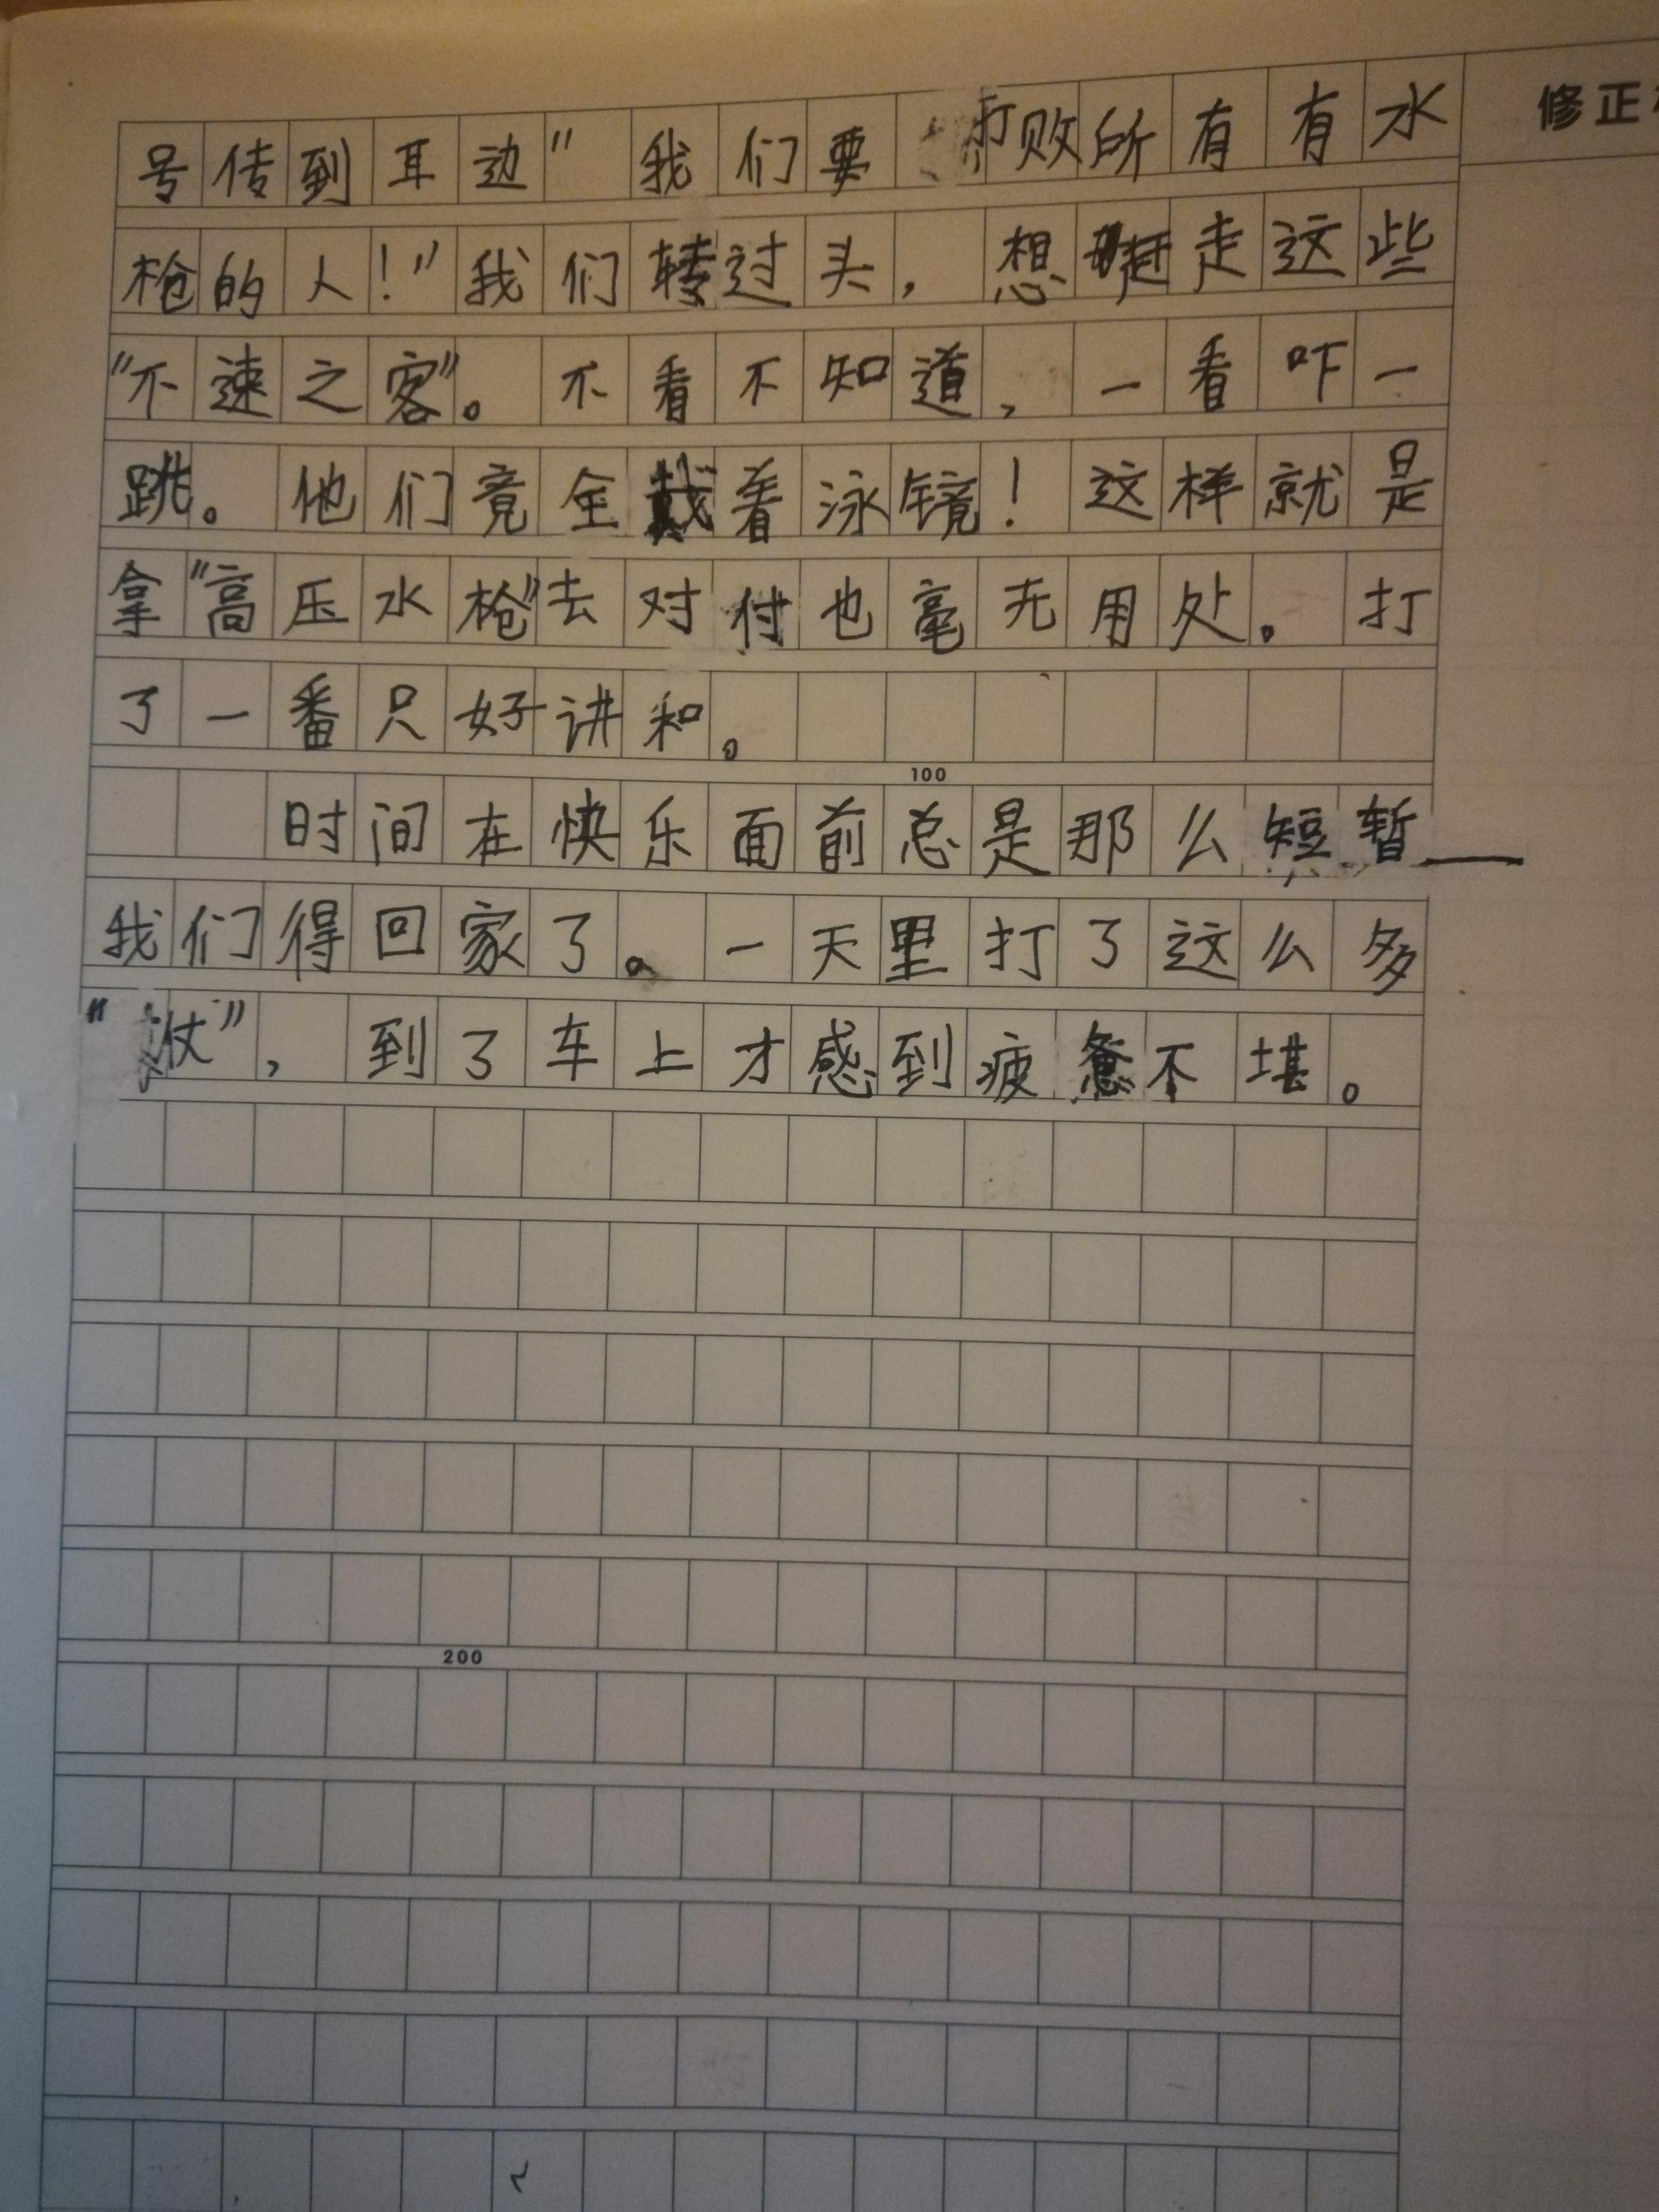 修正
号传到耳边"我们要打败所有有水
枪的人！"我们转过头，想赶走这些
"不速之客"。不看不知道，一看吓一
跳。他们竟全戴着泳镜！这样就是
拿"高压水枪"去对付也毫无用处。打
了一番只好讲和。
100
时间在快乐面前总是那么短暂——
我们得回家了。一天里打了这么多
"仗"，到了车上才感到疲惫不堪。
200